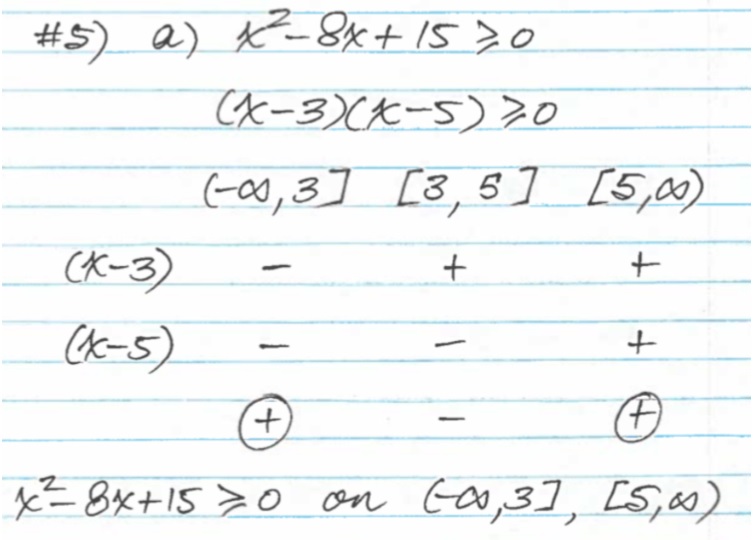 #5) a) x²-8x+15 ≥ 0
(x-3)(x-5) ≥ 0
(-∞,3] [3,5] [5,∞)
(x-3) - + +
(x-5) - - +
+ - +
x²-8x+15 ≥ 0 on (-∞,3], [5,∞)